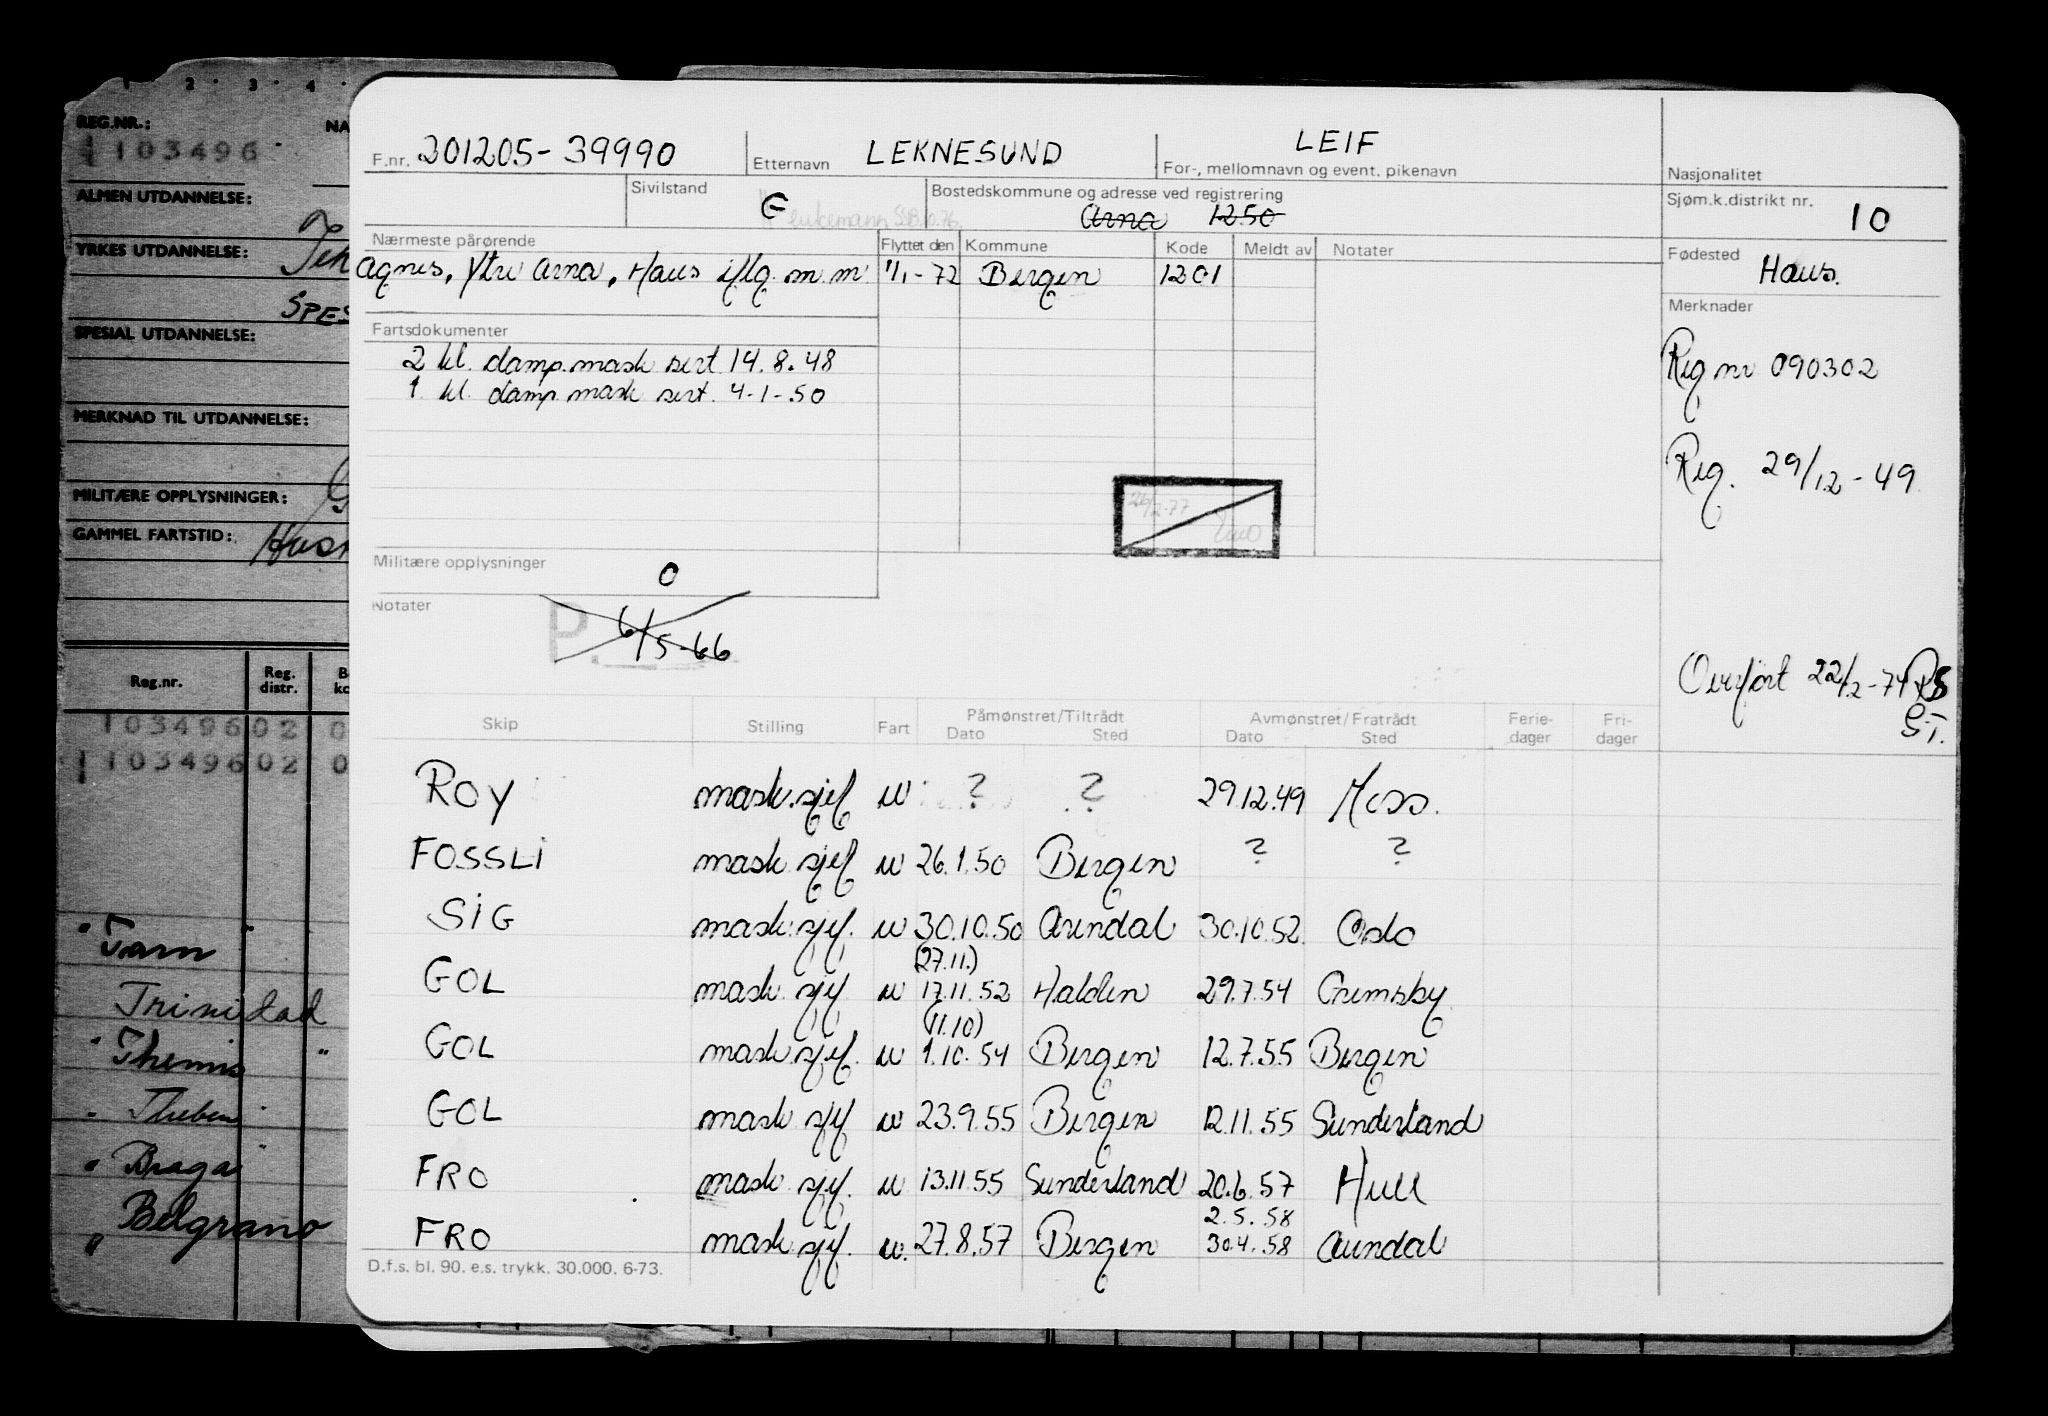 1 2 3 4
REG.NR.: NA
103496
ALMEN UTDANNELSE:
YRKES UTDANNELSE:
SPES
SPESIAL UTDANNELSE:
MERKNAD TIL UTDANNELSE:
MILITÆRE OPPLYSNINGER:
GAMMEL FARTSTID:
Reg.nr. Reg. distr. B ko
103496 02 0
103496 02 0
" Tarn "
Trinidad
" Themis "
" Theben
" Braga "
" Belgrano
F.nr. 201205-39990 Etternavn LEKNESUND LEIF
For-, mellomnavn og event. pikenavn
Nasjonalitet
Sivilstand G
Bostedskommune og adresse ved registrering
Arna 1250
Sjøm.k.distrikt nr. 10
Nærmeste pårørende Flyttet den Kommune Kode Meldt av Notater
Agnes, Ytre Arna, Haus iflg. m.m. 1/1-72 Bergen 1201
Fødested Haus.
Merknader
Fartsdokumenter
2 kl. damp.mask sert 14.8.48
1. kl. damp mask sert. 4-1-50
Reg nr 090302
Reg. 29/12-49
26/2-77
Militære opplysninger 0
Notater
P. 6/5-66
Overført 22/2-74
G.T.
Skip Stilling Fart Påmønstret/Tiltrådt Avmønstret/Fratrådt Ferie-dager Fri-dager
Dato Sted Dato Sted
ROY mask.sjef u ? ? 29.12.49 Moss.
FOSSLI mask sjef u 26.1.50 Bergen ? ?
SIG mask.sjef. u 30.10.50 Arendal 30.10.52 Oslo
(27.11.)
GOL mask sjef u 17.11.52 Halden 29.7.54 Grimsby
(11.10)
GOL mask sjef. u 1.10.54 Bergen 12.7.55 Bergen
GOL mask sjef u 23.9.55 Bergen 12.11.55 Sunderland
FRO mask sjef. u 13.11.55 Sunderland 20.6.57 Hull
2.5.58
FRO mask sjef. u. 27.8.57 Bergen 30.4.58 Arendal
D.f.s. bl. 90. e.s. trykk. 30.000. 6-73.